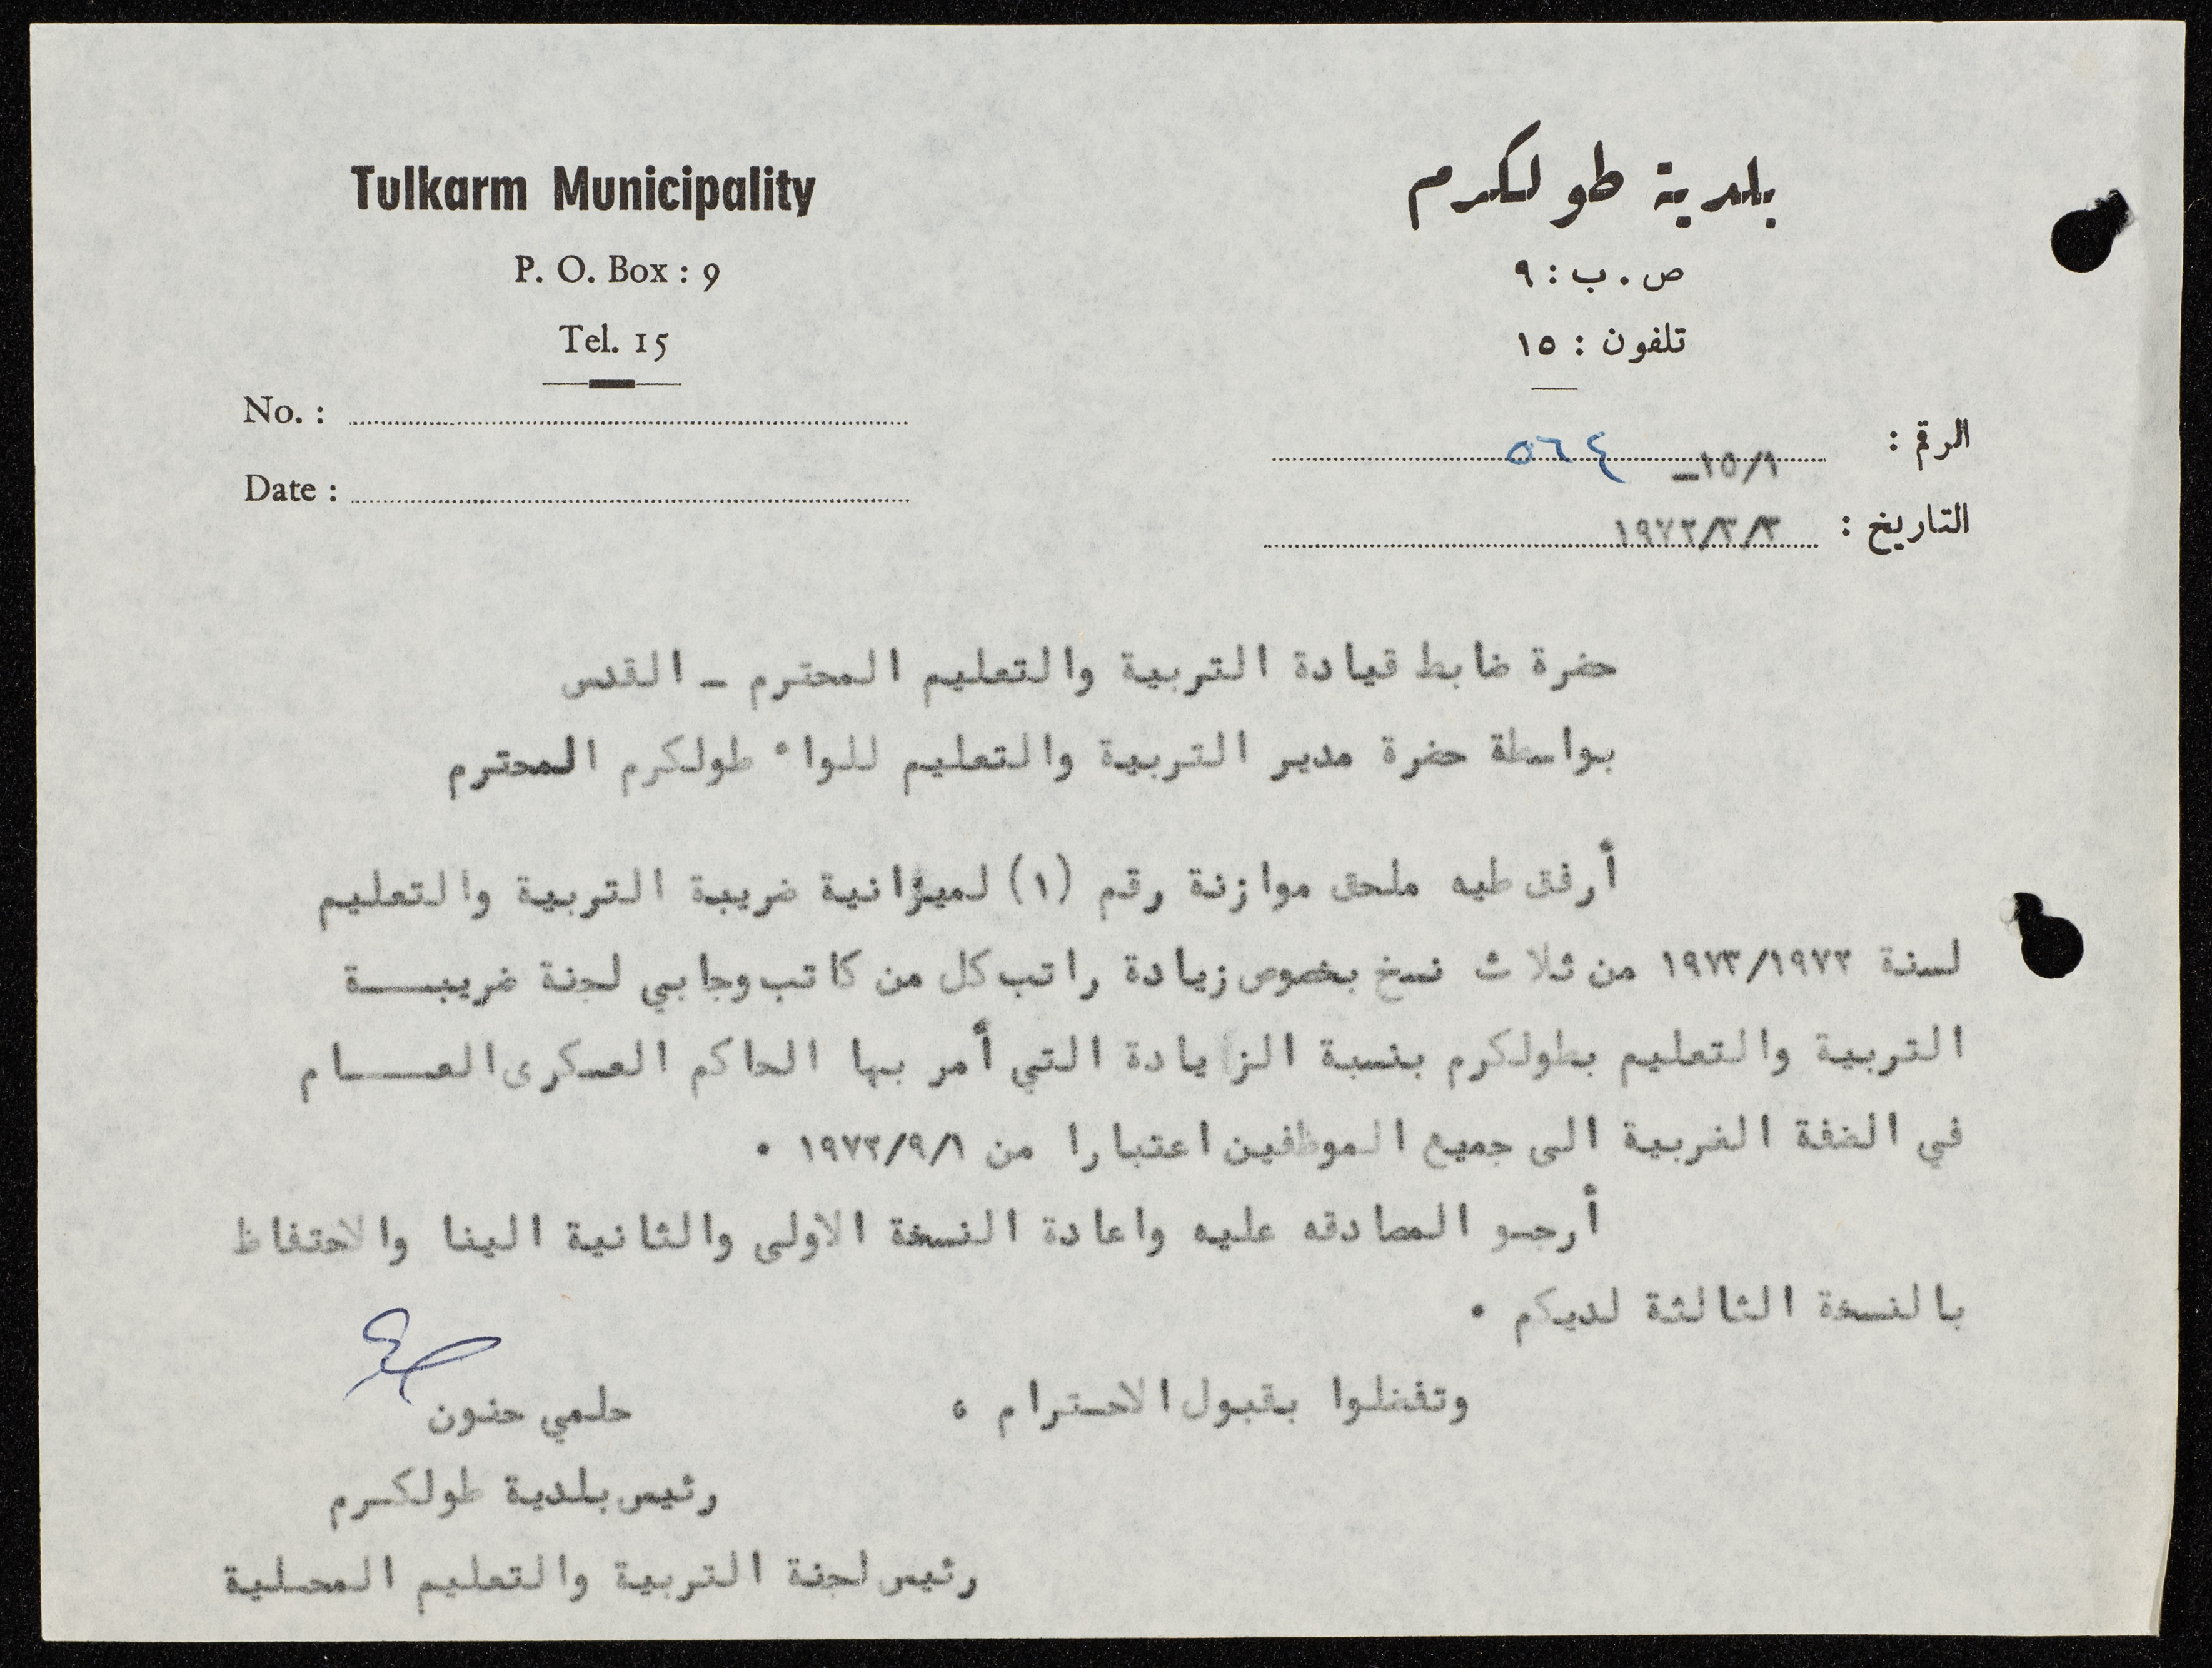 Tulkarm Municipality
P. O. Box : 9
Tel. 15
No. :
Date :
بلدية طولكرم
ص . ب : ٩
تلفون : ١٥
الرقم : ١٥/١ـ ٥٦٤
التاريخ :
حضرة ضابط قيادة التربية والتعليم المحترم ـ القدس
بواسطة حضرة مدير التربية والتعليم للواء طولكرم المحترم
أرفق طيه ملحق موازنة رقم (١) لميزانية ضريبة التربية والتعليم
لسنة ١٩٧٣/١٩٧٢ من ثلاث نسخ بخصوص زيادة راتب كل من كاتب وجابي لجنة ضريبـــة
التربية والتعليم بطولكرم بنسبة الزيادة التي أمر بها الحاكم العسكرى العـــام
في الضفة الغربية الى جميع الموظفين اعتبارا من ١٩٧٢/٩/١ •
أرجو المصادقه عليه واعادة النسخة الاولى والثانية الينا والاحتفاظ
بالنسخة الثالثة لديكم •
وتفضلوا بقبول الاحترام ،
حلمي حنون
رئيس بلدية طولكرم
رئيس لجنة التربية والتعليم المحلية